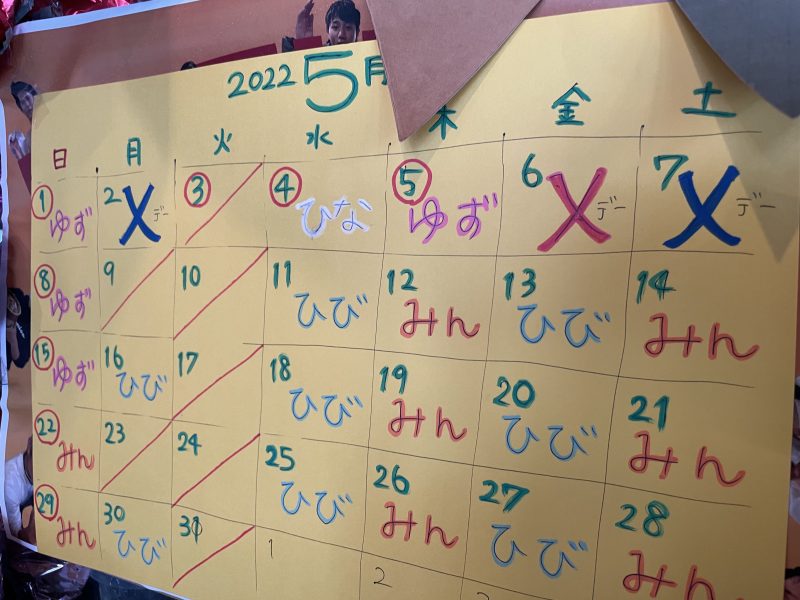 2022 5月
日 月 火 水 木 金 土
1 2 3 4 5 6 7
ゆず Xデー ひな ゆず Xデー Xデー
8 9 10 11 12 13 14
ゆず ひび みん ひび みん
15 16 17 18 19 20 21
ゆず ひび ひび みん ひび みん
22 23 24 25 26 27 28
みん ひび みん ひび みん
29 30 31 1 2
みん ひび